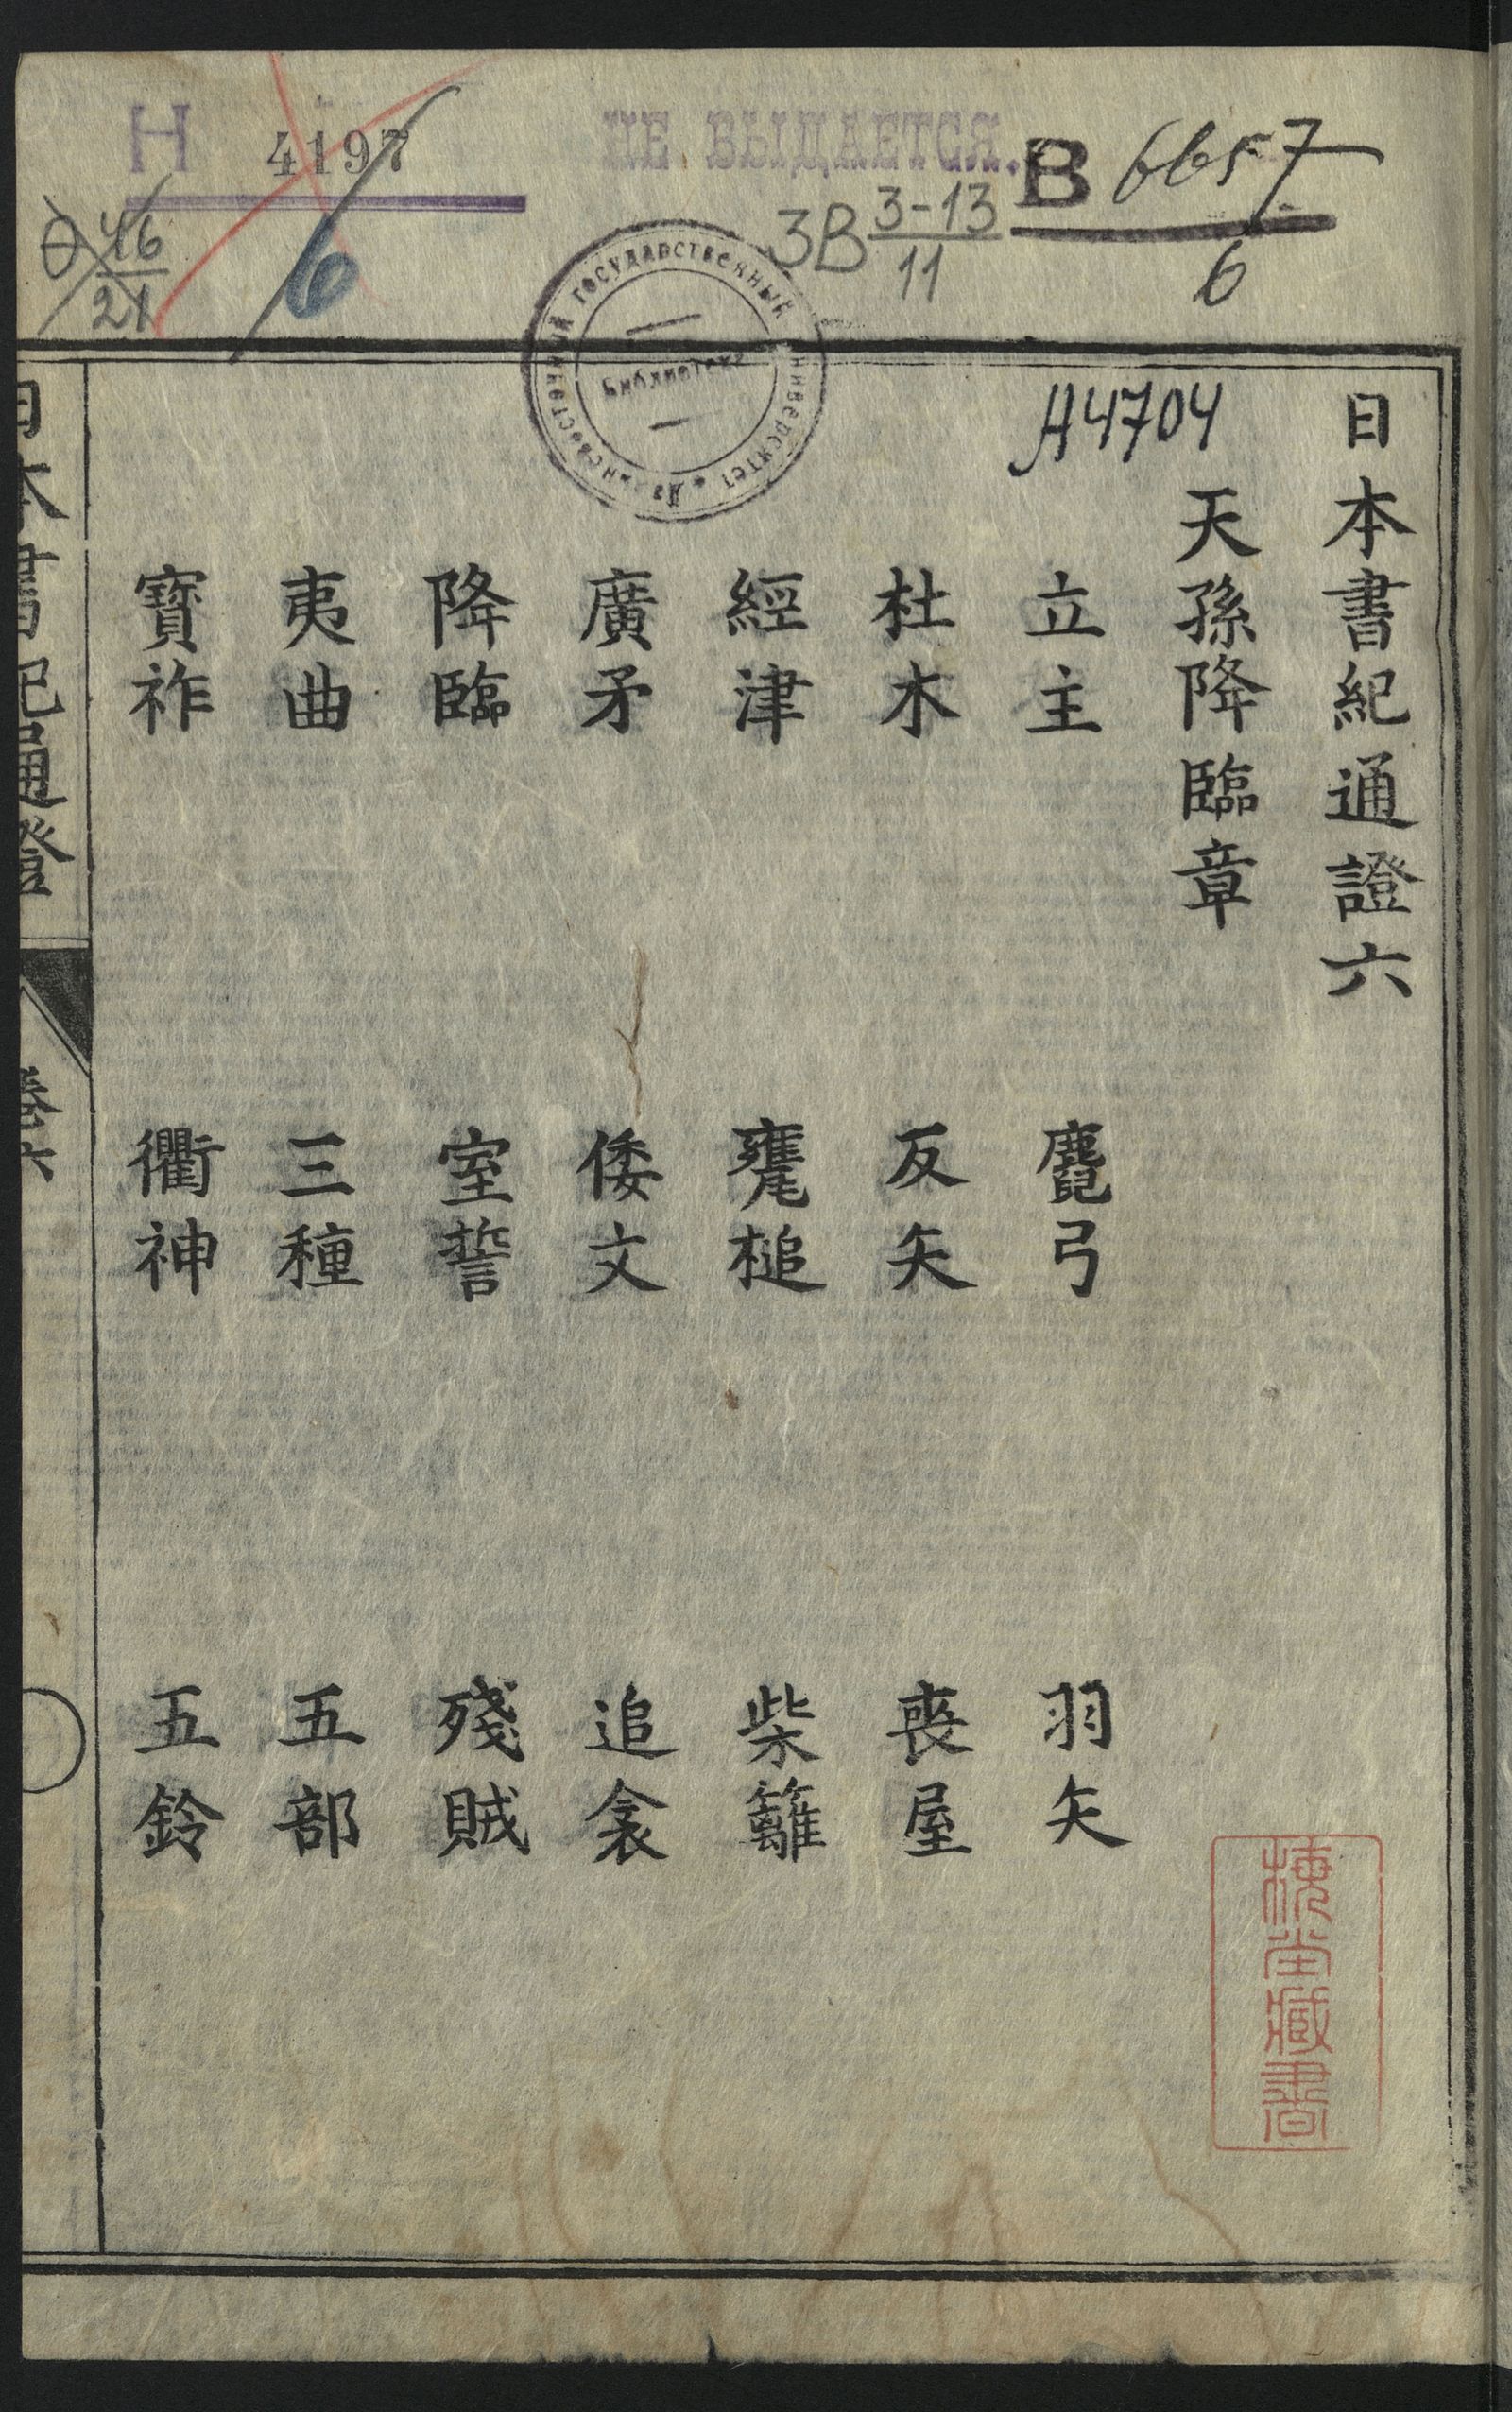 Н 4197
6
НЕ ВЫДАЕТСЯ.
В 6657
6
3В 3-13
11
46
21
Государственный
Библиотека
A4704
日本書紀通證六
天孫降臨章
立主 麑弓 羽矢
杜木 反矢 喪屋
經津 甕槌 柴籬
廣矛 倭文 追衾
降臨 室誓 殘賊
夷曲 三種 五部
寶祚 衢神 五鈴
日本書紀通證 卷六